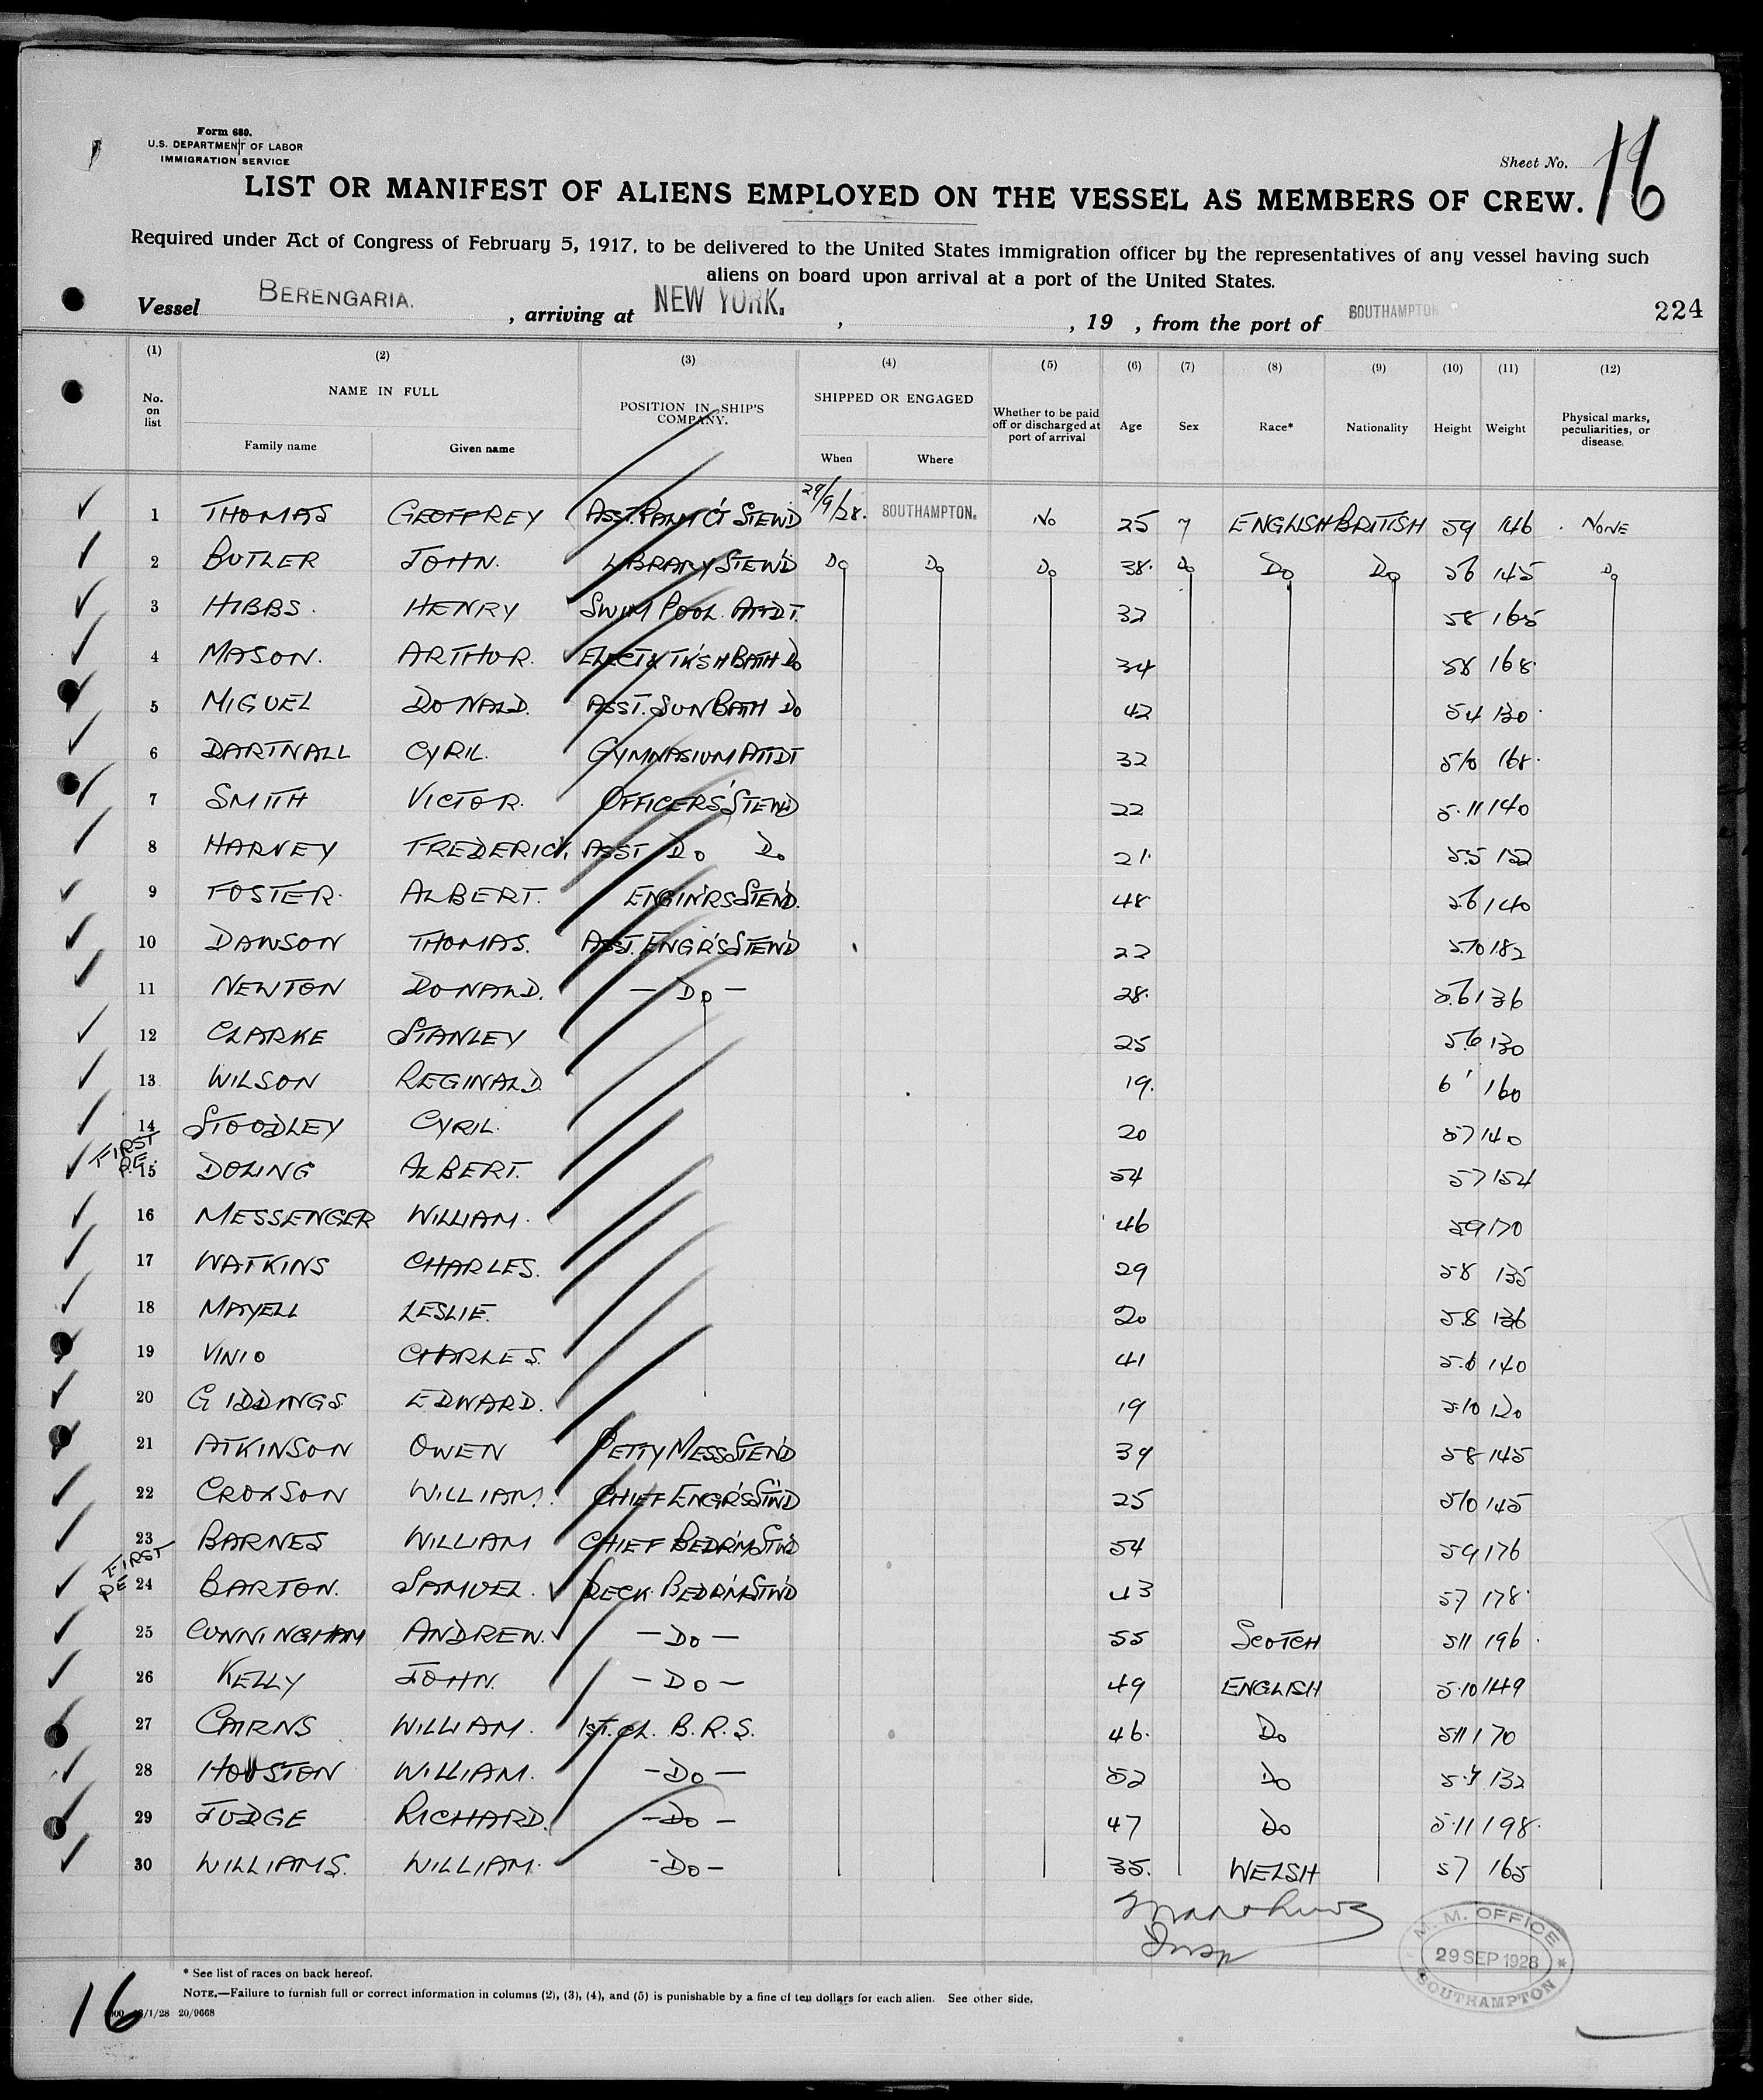 Form 680.
U.S. DEPARTMENT OF LABOR
IMMIGRATION SERVICE
Sheet No. 16
LIST OR MANIFEST OF ALIENS EMPLOYED ON THE VESSEL AS MEMBERS OF CREW.
Required under Act of Congress of February 5, 1917, to be delivered to the United States immigration officer by the representatives of any vessel having such
aliens on board upon arrival at a port of the United States.
Vessel BERENGARIA. , arriving at NEW YORK. , , 19 , from the port of SOUTHAMPTON 224
(1) (2) (3) (4) (5) (6) (7) (8) (9) (10) (11) (12)
No. on list NAME IN FULL Family name Given name POSITION IN SHIP'S COMPANY. SHIPPED OR ENGAGED When Where Whether to be paid off or discharged at port of arrival Age Sex Race* Nationality Height Weight Physical marks, peculiarities, or disease.
1 THOMAS GEOFFREY ASST. PANT'Y STEW'D 29/9/28. SOUTHAMPTON. NO 25 ENGLISH BRITISH 59 146 NONE
2 BUTLER JOHN. LIBRARY STEW'D Do Do Do 38. Do Do Do 56 145 Do
3 HIBBS. HENRY SWIM POOL. ATTDT. 32 58 165
4 MASON. ARTHUR. ELECT & TK'SH BATH Do 34 58 168.
5 MIGUEL DONALD. ASST. SUN BATH Do 42 54 130.
6 DARTNALL CYRIL. GYMNASIUM ATTDT 32 510 168.
7 SMITH VICTOR. OFFICERS' STEW'D 22 5.11 140
8 HARVEY FREDERICK. ASST Do Do 21. 5.5 152
9 FOSTER. ALBERT. ENGIN'RS STE'WD. 48 56 140
10 DAWSON THOMAS. ASST. ENGR'S STEW'D 22 5.10 182
11 NEWTON DONALD. — Do — 28. 5.6 136
12 CLARKE STANLEY 25 5.6 130
13 WILSON REGINALD. 19. 6' 160
14 STOODLEY CYRIL. 20 57 140
FIRST
15 DOLING ALBERT. 54 57 154
16 MESSENGER WILLIAM. 46 59 170
17 WATKINS CHARLES. 29 58 135
18 MAYELL LESLIE. 20 5.8 136
19 VINIO CHARLES. 41 5.6 140
20 GIDDINGS EDWARD. 19 5.10 120
21 ATKINSON OWEN PETTY MESS STE'WD 39 58 145
22 CROXSON WILLIAM. CHIEF ENGR'S STW'D 25 510 145
23 BARNES WILLIAM CHIEF BEDR'M STW'D 54 59 176
FIRST
24 BARTON. SAMUEL. DECK BEDR'M STW'D 43 5.7 178.
25 CUNNINGHAM ANDREW. — Do — 55 SCOTCH 511 196.
26 KELLY JOHN. — Do — 49 ENGLISH 5.10 149
27 CAIRNS WILLIAM. 1ST. CL. B. R. S. 46. Do 511 170
28 HOUSTON WILLIAM. — Do — 52 Do 132
29 JUDGE RICHARD. — Do — 47 Do 5.11 198.
30 WILLIAMS. WILLIAM. - Do - 35. WELSH 57 165
M. M. OFFICE
29 SEP 1928
SOUTHAMPTON
* See list of races on back hereof.
NOTE.—Failure to furnish full or correct information in columns (2), (3), (4), and (5) is punishable by a fine of ten dollars for each alien. See other side.
16
/1/28 20/9668